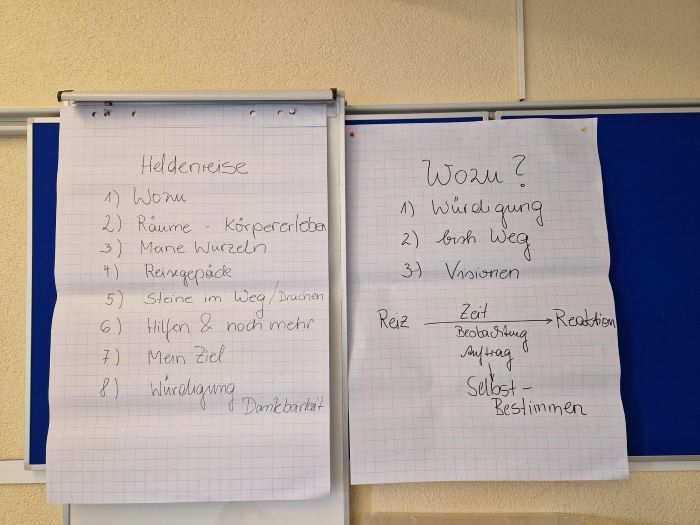 Heldenreise
1) Wozu
2) Räume - Körpererleben
3) Meine Wurzeln
4) Reisegepäck
5) Steine im Weg/Drachen
6) Hilfen & noch mehr
7) Mein Ziel
8) Würdigung
Dankbarkeit
Wozu?
1) Würdigung
2) bish Weg
3) Visionen
Reiz Zeit Reaktion
Beobachtung
Auftrag
Selbst-
Bestimmen